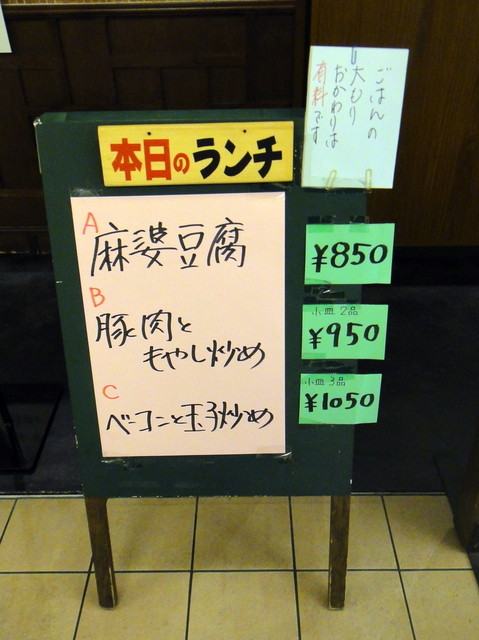 本日のランチ
ごはんの
大もり
おかわりは
有料です
A
麻婆豆腐
B
豚肉と
もやし炒め
C
ベーコンと玉子炒め
¥850
小皿2品
¥950
小皿3品
¥1050